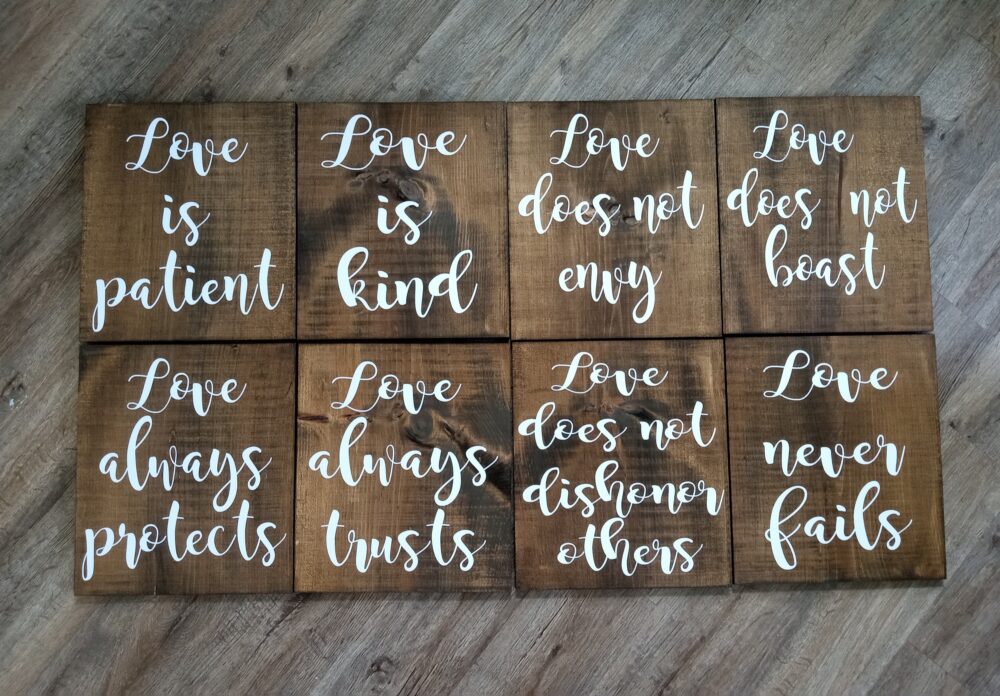 Love
is
patient
Love
is
kind
Love
does not
envy
Love
does not
boast
Love
always
protects
Love
always
trusts
Love
does not
dishonor
others
Love
never
fails